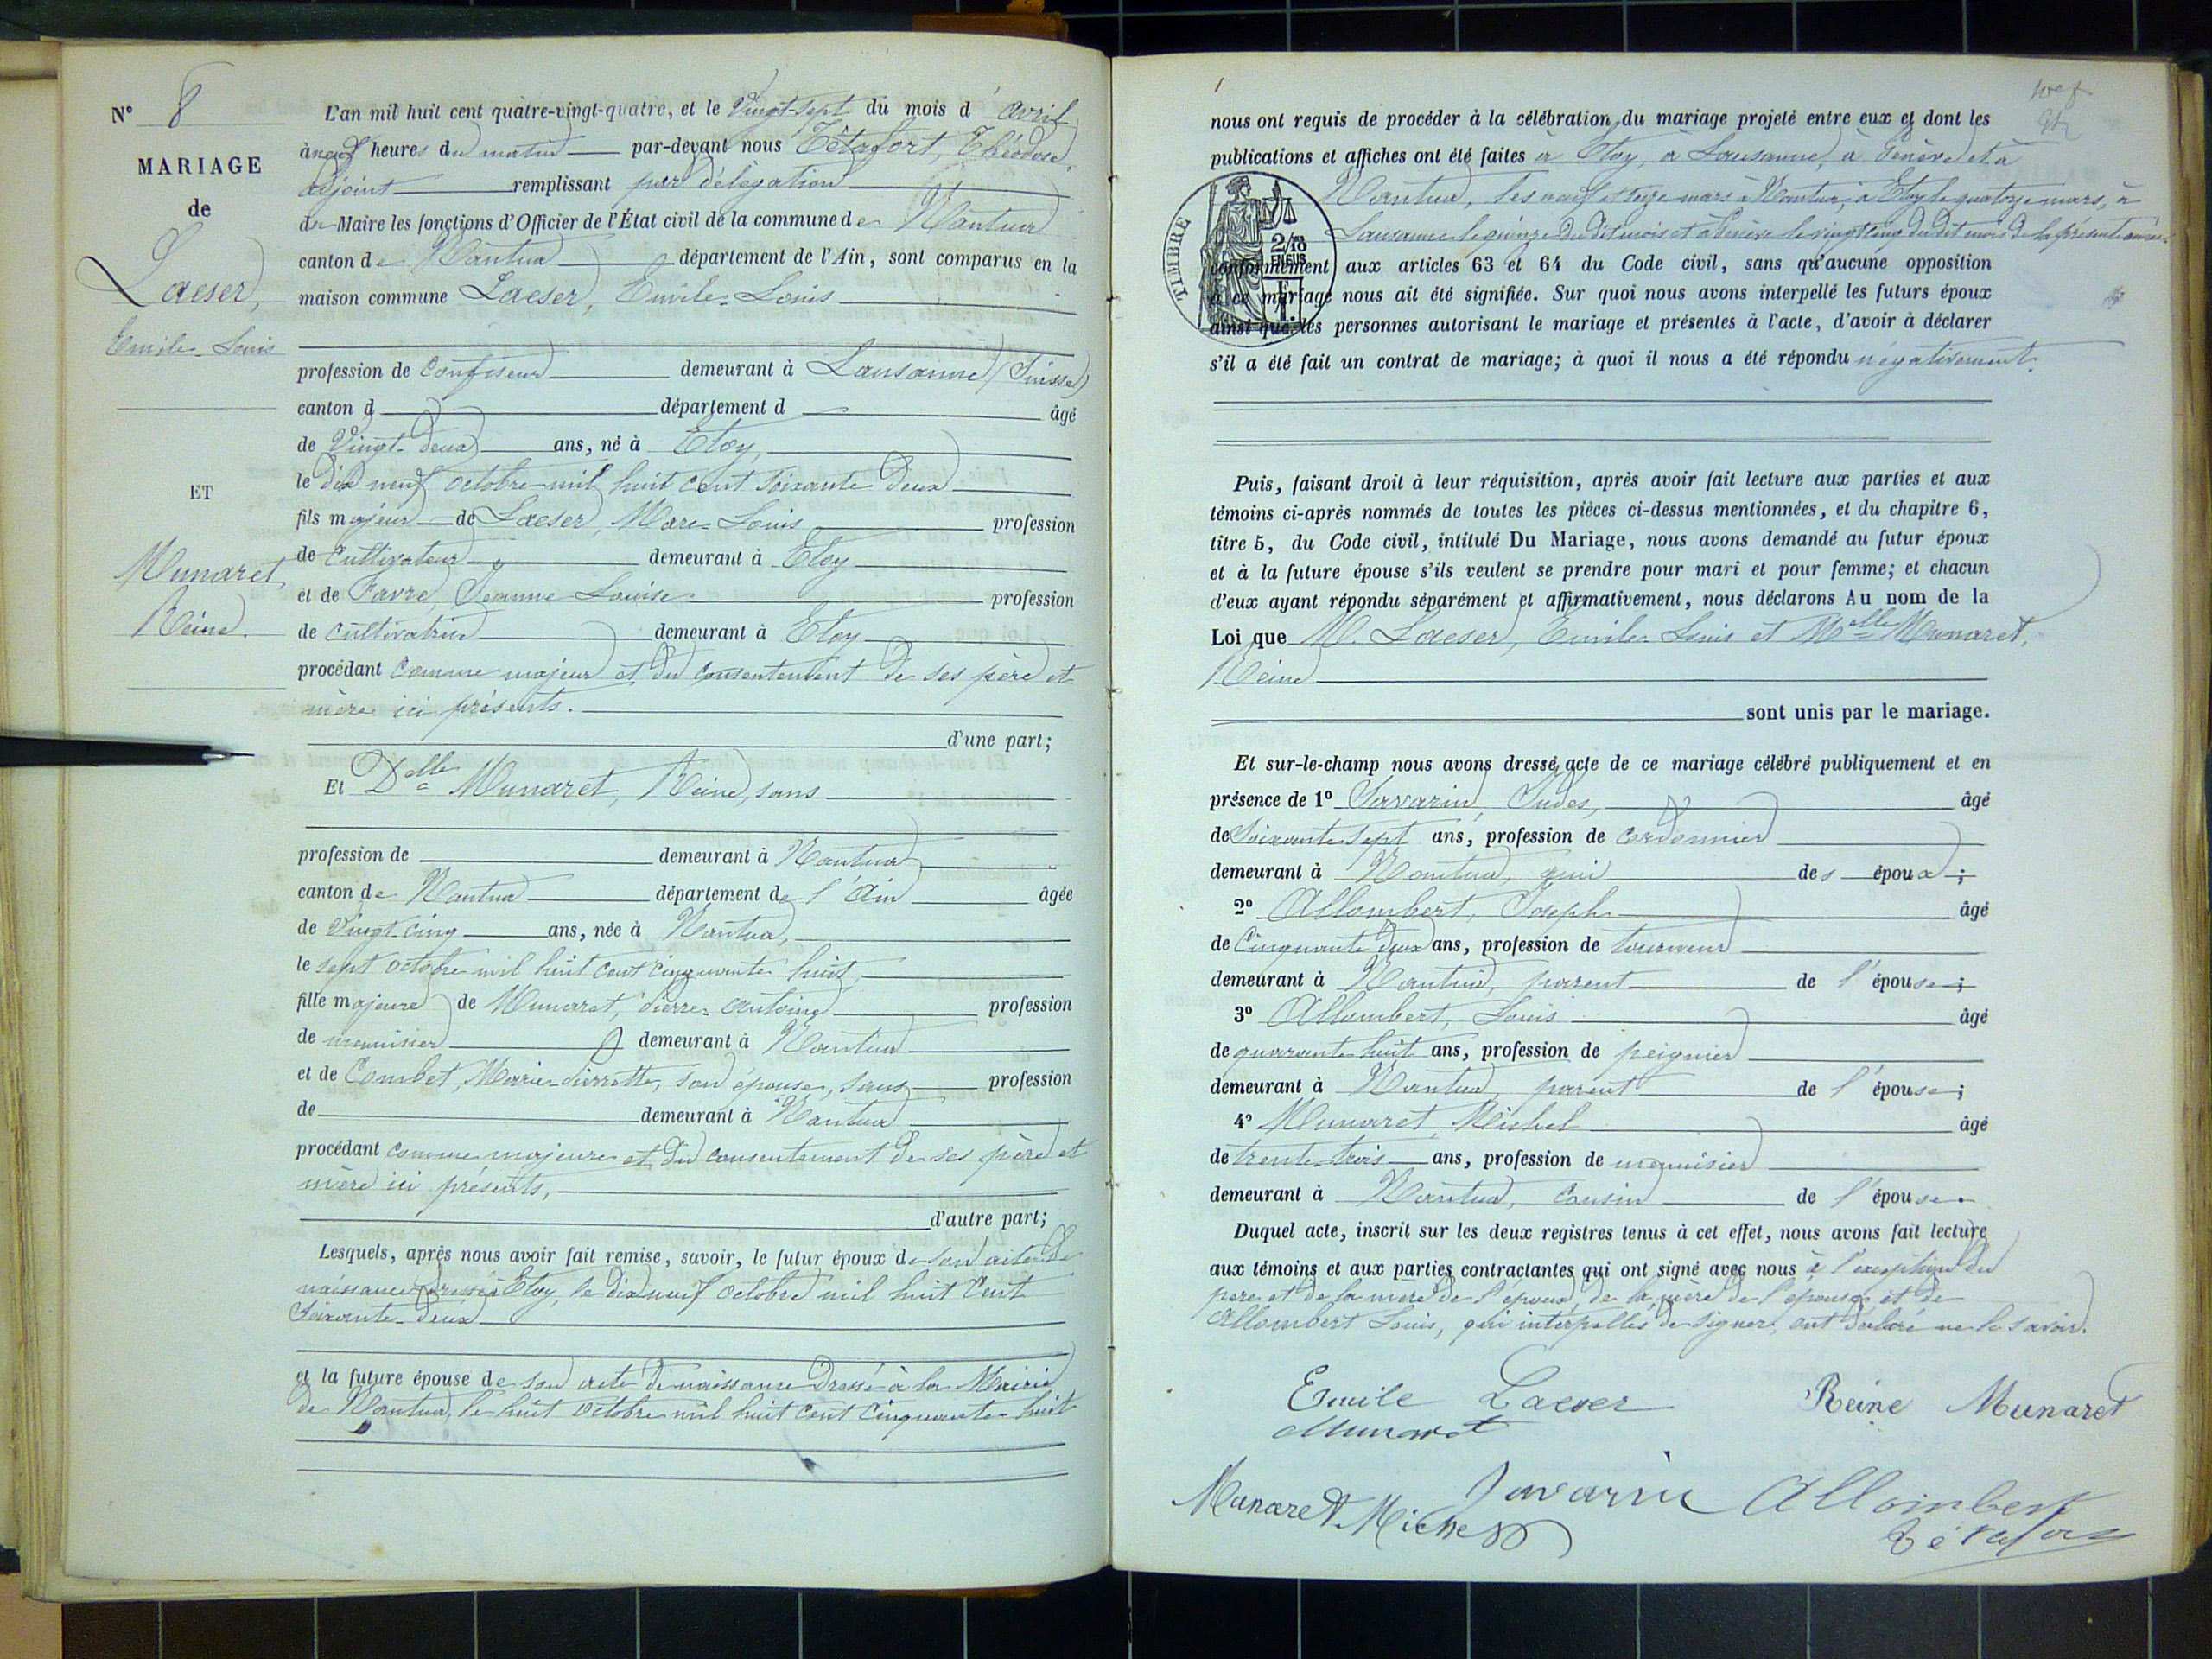 N° 8
MARIAGE
de
Laeser,
Emile-Louis
ET
Munaret,
Reine.
L'an mil huit cent quatre-vingt-quatre, et le Vingt-sept du mois d'avril
à neuf heures du matin par-devant nous Tétafort, Théodose,
adjoint remplissant par délégation
du Maire les fonctions d'Officier de l'État civil de la commune de Nantua
canton de Nantua département de l'Ain, sont comparus en la
maison commune Laeser, Emile-Louis
profession de Confiseur demeurant à Lausanne (Suisse)
canton d département d âgé
de Vingt-deux ans, né à Etoy,
le dix neuf octobre mil huit cent soixante deux
fils majeur de Laeser, Marc-Louis profession
de Cultivateur demeurant à Etoy
et de Favre, Jeanne Louise profession
de cultivatrice demeurant à Etoy
procédant comme majeur et du consentement de ses père et
mère ici présents.
d'une part;
Et Delle Munaret, Reine, sans
profession de demeurant à Nantua
canton de Nantua département de l'Ain âgée
de Vingt-cinq ans, née à Nantua,
le sept octobre mil huit cent cinquante huit,
fille majeure de Munaret, Pierre-Antoine profession
de menuisier demeurant à Nantua
et de Combet, Marie-Pierrette, son épouse, sans profession
de demeurant à Nantua
procédant comme majeure et du consentement de ses père et
mère ici présents,
d'autre part;
Lesquels, après nous avoir fait remise, savoir, le futur époux de son acte de
naissance dressé à Etoy, le dix neuf octobre mil huit cent
soixante-deux
et la future épouse de son acte de naissance dressé à la Mairie
de Nantua, le huit octobre mil huit cent cinquante-huit
nous ont requis de procéder à la célébration du mariage projeté entre eux et dont les
publications et affiches ont été faites à Etoy, à Lausanne, à Genève et à
Nantua, les neuf et seize mars à Nantua, à Etoy le quatorze mars, à
Lausanne le quinze du dit mois et à Genève le vingt cinq du dit mois de la présente année
TIMBRE
2/10
EN SUS
conformément aux articles 63 et 64 du Code civil, sans qu'aucune opposition
à ce mariage nous ait été signifiée. Sur quoi nous avons interpellé les futurs époux
ainsi que les personnes autorisant le mariage et présentes à l'acte, d'avoir à déclarer
s'il a été fait un contrat de mariage; à quoi il nous a été répondu négativement.
Puis, faisant droit à leur réquisition, après avoir fait lecture aux parties et aux
témoins ci-après nommés de toutes les pièces ci-dessus mentionnées, et du chapitre 6,
titre 5, du Code civil, intitulé Du Mariage, nous avons demandé au futur époux
et à la future épouse s'ils veulent se prendre pour mari et pour femme; et chacun
d'eux ayant répondu séparément et affirmativement, nous déclarons Au nom de la
Loi que M. Laeser, Emile-Louis et Melle Munaret,
Reine
sont unis par le mariage.
Et sur-le-champ nous avons dressé acte de ce mariage célébré publiquement et en
présence de 1° Savarin, Judes, âgé
de Soixante sept ans, profession de cordonnier
demeurant à Nantua, ami des époux;
2° Allombert, Joseph âgé
de Cinquante deux ans, profession de tourneur
demeurant à Nantua, parent de l'épouse;
3° Allombert, Louis âgé
de quarante huit ans, profession de peignier
demeurant à Nantua, parent de l'épouse;
4° Munaret, Michel âgé
de trente-trois ans, profession de menuisier
demeurant à Nantua, cousin de l'épouse.
Duquel acte, inscrit sur les deux registres tenus à cet effet, nous avons fait lecture
aux témoins et aux parties contractantes qui ont signé avec nous à l'exception du
père et de la mère de l'époux, de la mère de l'épouse et de
Allombert Louis, qui interpellés de signer, ont déclaré ne le savoir.
Emile Laeser Reine Munaret
Munaret
Savarin Allombert
Munaret Michel
Tétafort